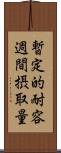 暫定的耐容
週間摂取量